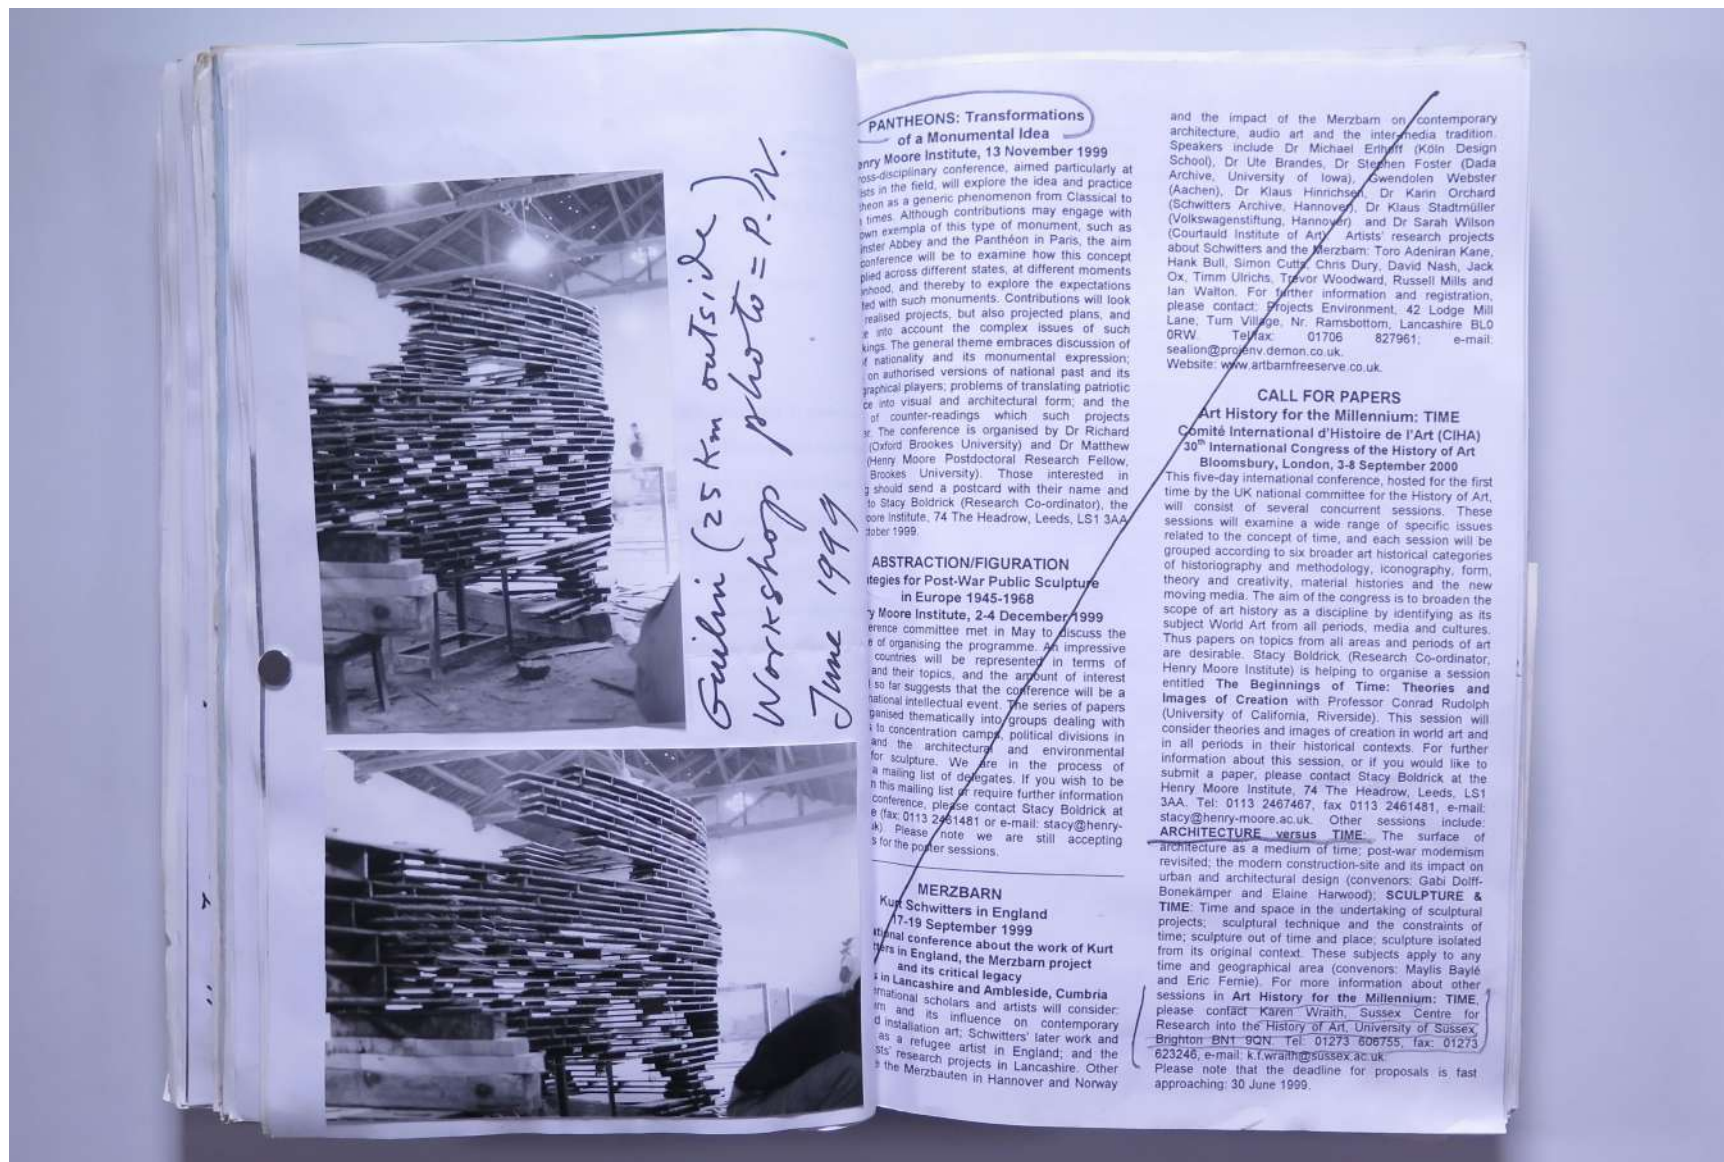 Guilin (25 Km outside)
Workshop photo = P.N.
June 1999
PANTHEONS: Transformations
of a Monumental Idea
enry Moore Institute, 13 November 1999
oss-disciplinary conference, aimed particularly at
ists in the field, will explore the idea and practice
theon as a generic phenomenon from Classical to
times. Although contributions may engage with
own exempla of this type of monument, such as
inster Abbey and the Panthéon in Paris, the aim
conference will be to examine how this concept
plied across different states, at different moments
onhood, and thereby to explore the expectations
ted with such monuments. Contributions will look
realised projects, but also projected plans, and
e into account the complex issues of such
kings. The general theme embraces discussion of
f nationality and its monumental expression;
on authorised versions of national past and its
graphical players; problems of translating patriotic
ce into visual and architectural form; and the
of counter-readings which such projects
er. The conference is organised by Dr Richard
(Oxford Brookes University) and Dr Matthew
(Henry Moore Postdoctoral Research Fellow,
Brookes University). Those interested in
g should send a postcard with their name and
to Stacy Boldrick (Research Co-ordinator), the
oore Institute, 74 The Headrow, Leeds, LS1 3AA
tober 1999.
ABSTRACTION/FIGURATION
ategies for Post-War Public Sculpture
in Europe 1945-1968
y Moore Institute, 2-4 December 1999
erence committee met in May to discuss the
e of organising the programme. An impressive
countries will be represented in terms of
and their topics, and the amount of interest
so far suggests that the conference will be a
national intellectual event. The series of papers
ganised thematically into groups dealing with
s to concentration camps, political divisions in
and the architectural and environmental
for sculpture. We are in the process of
a mailing list of delegates. If you wish to be
n this mailing list or require further information
conference, please contact Stacy Boldrick at
e (fax: 0113 2461481 or e-mail: stacy@henry-
uk). Please note we are still accepting
s for the poster sessions.
MERZBARN
Kurt Schwitters in England
17-19 September 1999
ational conference about the work of Kurt
tters in England, the Merzbarn project
and its critical legacy
s in Lancashire and Ambleside, Cumbria
ernational scholars and artists will consider:
arn and its influence on contemporary
d installation art; Schwitters' later work and
as a refugee artist in England; and the
sts' research projects in Lancashire. Other
e the Merzbauten in Hannover and Norway
and the impact of the Merzbarn on contemporary
architecture, audio art and the inter-media tradition.
Speakers include Dr Michael Erlhoff (Köln Design
School), Dr Ute Brandes, Dr Stephen Foster (Dada
Archive, University of Iowa), Gwendolen Webster
(Aachen), Dr Klaus Hinrichsen, Dr Karin Orchard
(Schwitters Archive, Hannover), Dr Klaus Stadtmüller
(Volkswagenstiftung, Hannover) and Dr Sarah Wilson
(Courtauld Institute of Art). Artists' research projects
about Schwitters and the Merzbarn: Toro Adeniran Kane,
Hank Bull, Simon Cutts, Chris Dury, David Nash, Jack
Ox, Timm Ulrichs, Trevor Woodward, Russell Mills and
Ian Walton. For further information and registration,
please contact: Projects Environment, 42 Lodge Mill
Lane, Turn Village, Nr. Ramsbottom, Lancashire BL0
0RW. Tel/fax: 01706 827961; e-mail:
sealion@projenv.demon.co.uk.
Website: www.artbarnfreeserve.co.uk.
CALL FOR PAPERS
Art History for the Millennium: TIME
Comité International d'Histoire de l'Art (CIHA)
30th International Congress of the History of Art
Bloomsbury, London, 3-8 September 2000
This five-day international conference, hosted for the first
time by the UK national committee for the History of Art,
will consist of several concurrent sessions. These
sessions will examine a wide range of specific issues
related to the concept of time, and each session will be
grouped according to six broader art historical categories
of historiography and methodology, iconography, form,
theory and creativity, material histories and the new
moving media. The aim of the congress is to broaden the
scope of art history as a discipline by identifying as its
subject World Art from all periods, media and cultures.
Thus papers on topics from all areas and periods of art
are desirable. Stacy Boldrick (Research Co-ordinator,
Henry Moore Institute) is helping to organise a session
entitled The Beginnings of Time: Theories and
Images of Creation with Professor Conrad Rudolph
(University of California, Riverside). This session will
consider theories and images of creation in world art and
in all periods in their historical contexts. For further
information about this session, or if you would like to
submit a paper, please contact Stacy Boldrick at the
Henry Moore Institute, 74 The Headrow, Leeds, LS1
3AA. Tel: 0113 2467467, fax 0113 2461481, e-mail:
stacy@henry-moore.ac.uk. Other sessions include:
ARCHITECTURE versus TIME: The surface of
architecture as a medium of time; post-war modernism
revisited; the modern construction-site and its impact on
urban and architectural design (convenors: Gabi Dolff-
Bonekämper and Elaine Harwood); SCULPTURE &
TIME: Time and space in the undertaking of sculptural
projects; sculptural technique and the constraints of
time; sculpture out of time and place; sculpture isolated
from its original context. These subjects apply to any
time and geographical area (convenors: Maylis Baylé
and Eric Fernie). For more information about other
sessions in Art History for the Millennium: TIME,
please contact Karen Wraith, Sussex Centre for
Research into the History of Art, University of Sussex,
Brighton BN1 9QN. Tel: 01273 606755, fax: 01273
623246, e-mail: k.f.wraith@sussex.ac.uk.
Please note that the deadline for proposals is fast
approaching: 30 June 1999.